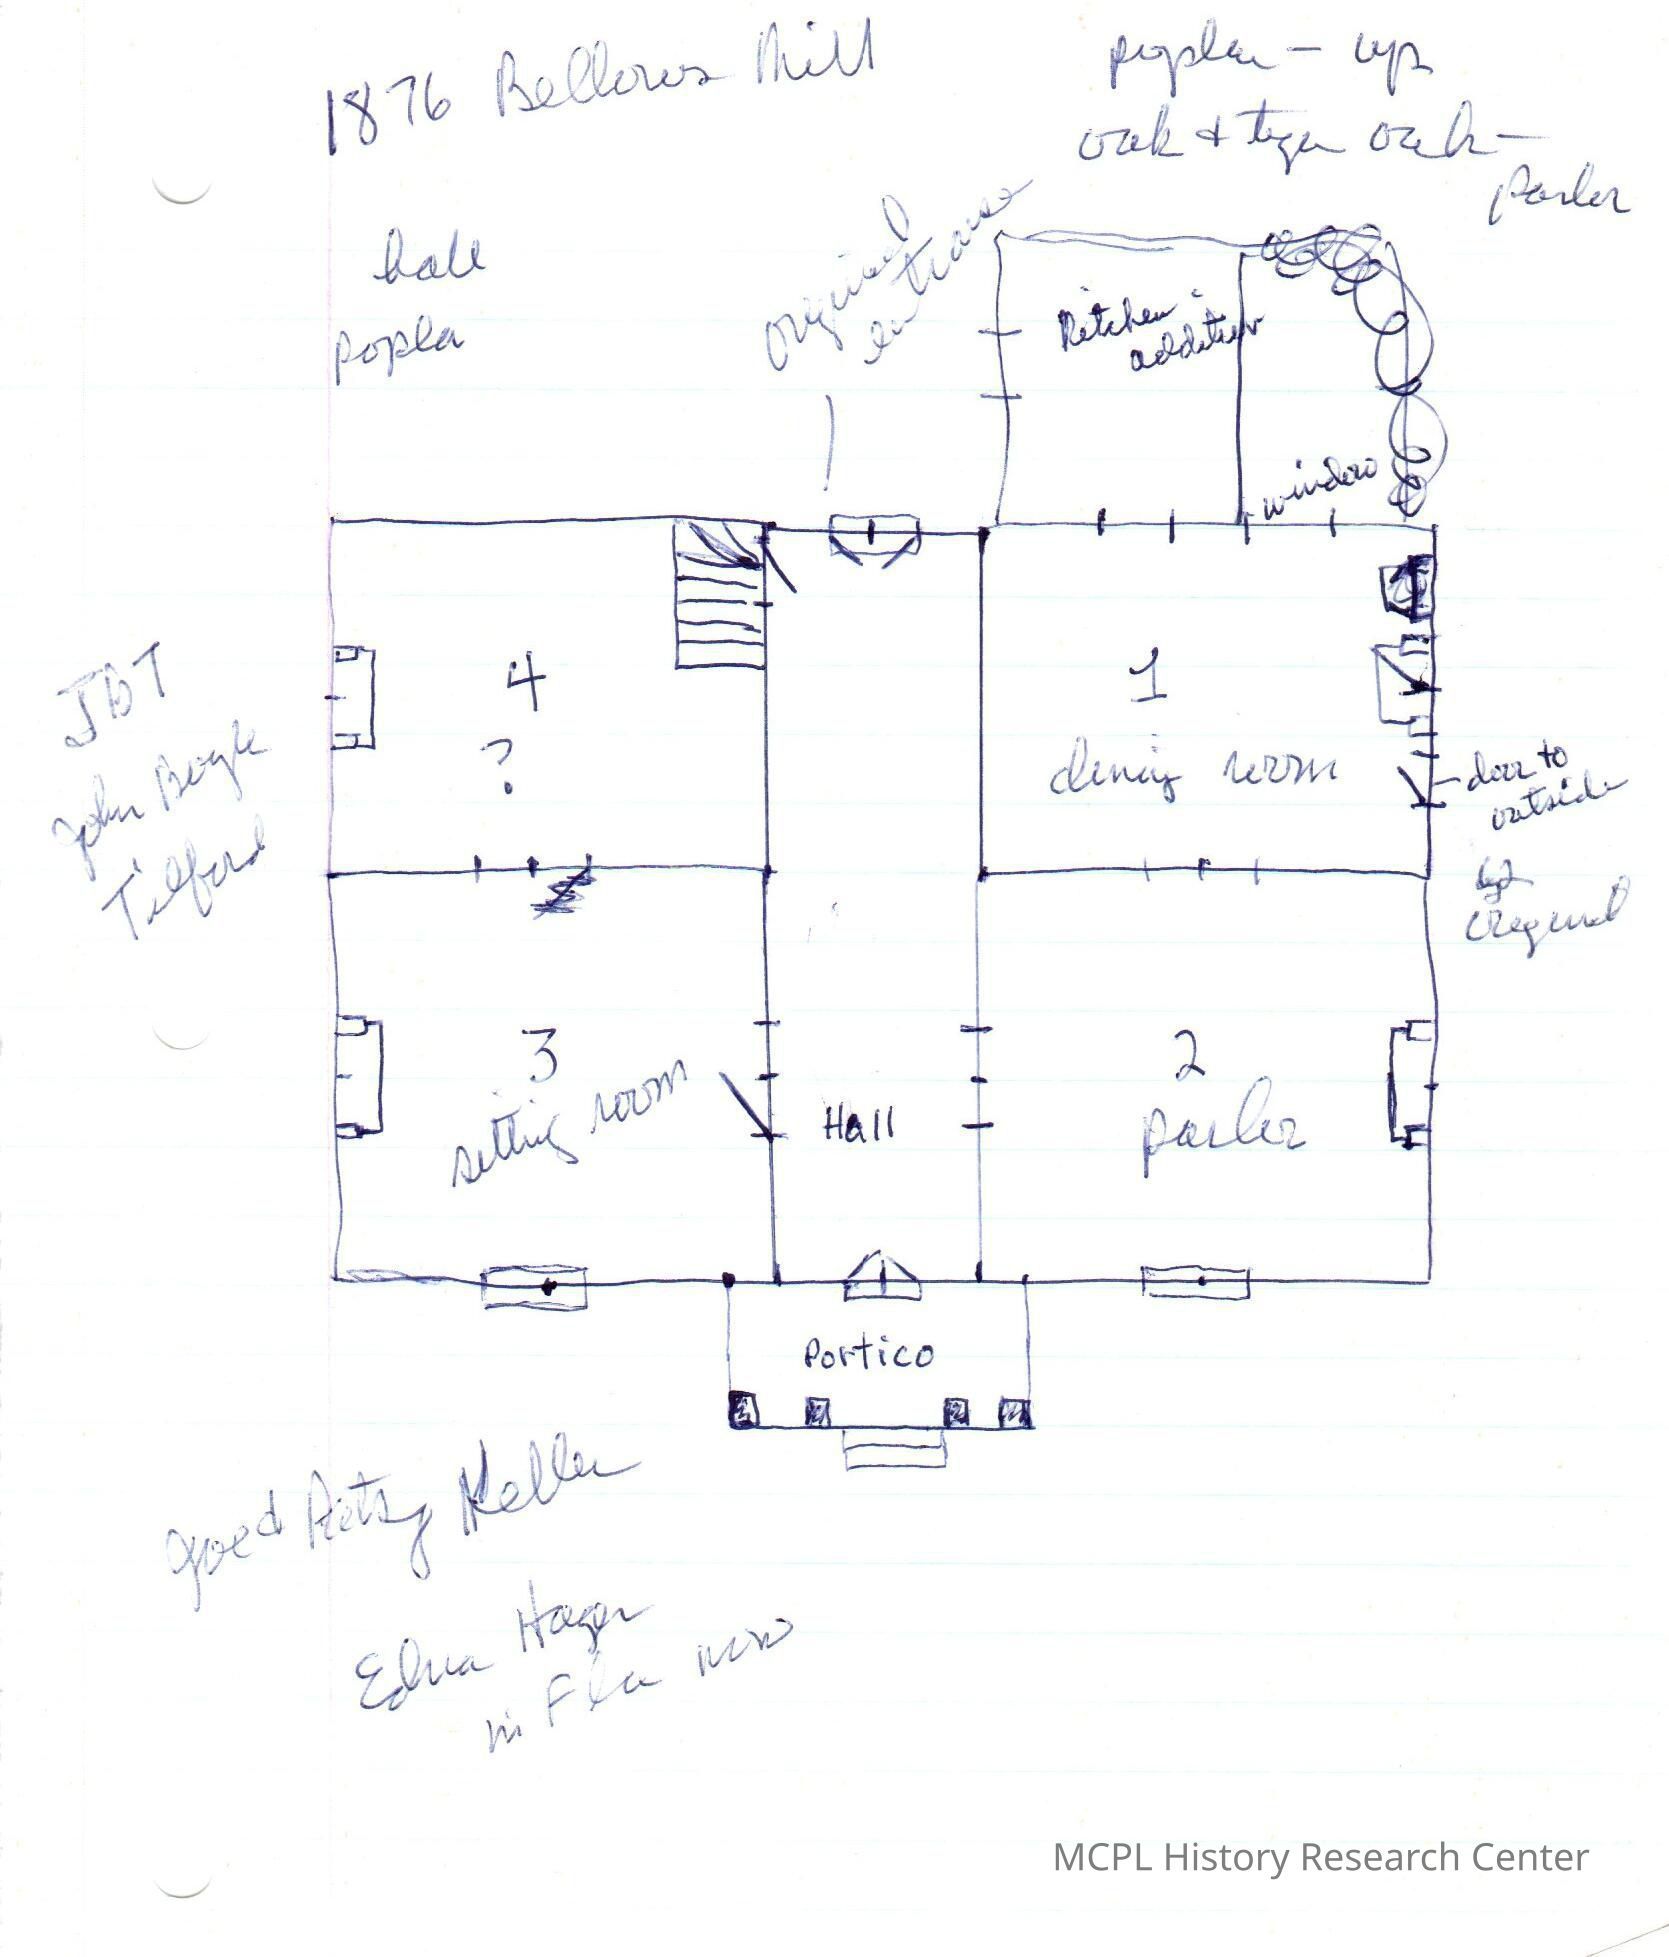 1876 Bellows Mill
poplar - up
oak + tiger oak -
parlor
hall
popla
original
entrance
Kitchen
addition
window
4
?
1
dining room
door to
outside
JBT
John Boyle
Tilford
3
sitting room
Hall
2
parlor
Portico
good Betsy Keller
Edna Hager
in Fla now
MCPL History Research Center